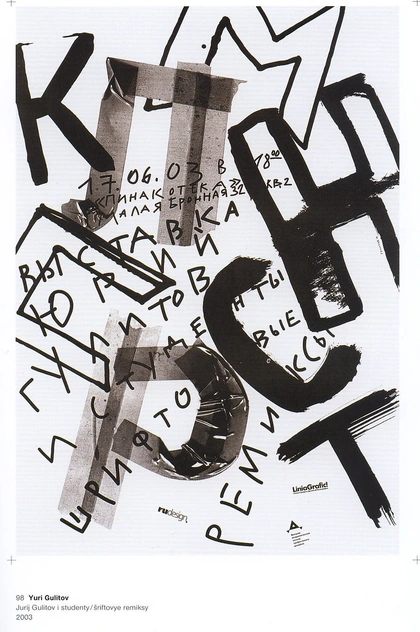 17.06.03 В 18 00
«ПИНАКОТЕКА»
МАЛАЯ БРОННАЯ 32 КВ.2
ВЫСТАВКА
ЮРИЙ
ГУЛИТОВ
И СТУДЕНТЫ
ШРИФТОВЫЕ
РЕМИКСЫ
К
П
Р
С
Т
rudesign
LiniaGrafic!
98 Yuri Gulitov
Jurij Gulitov i studenty/šriftovye remiksy
2003